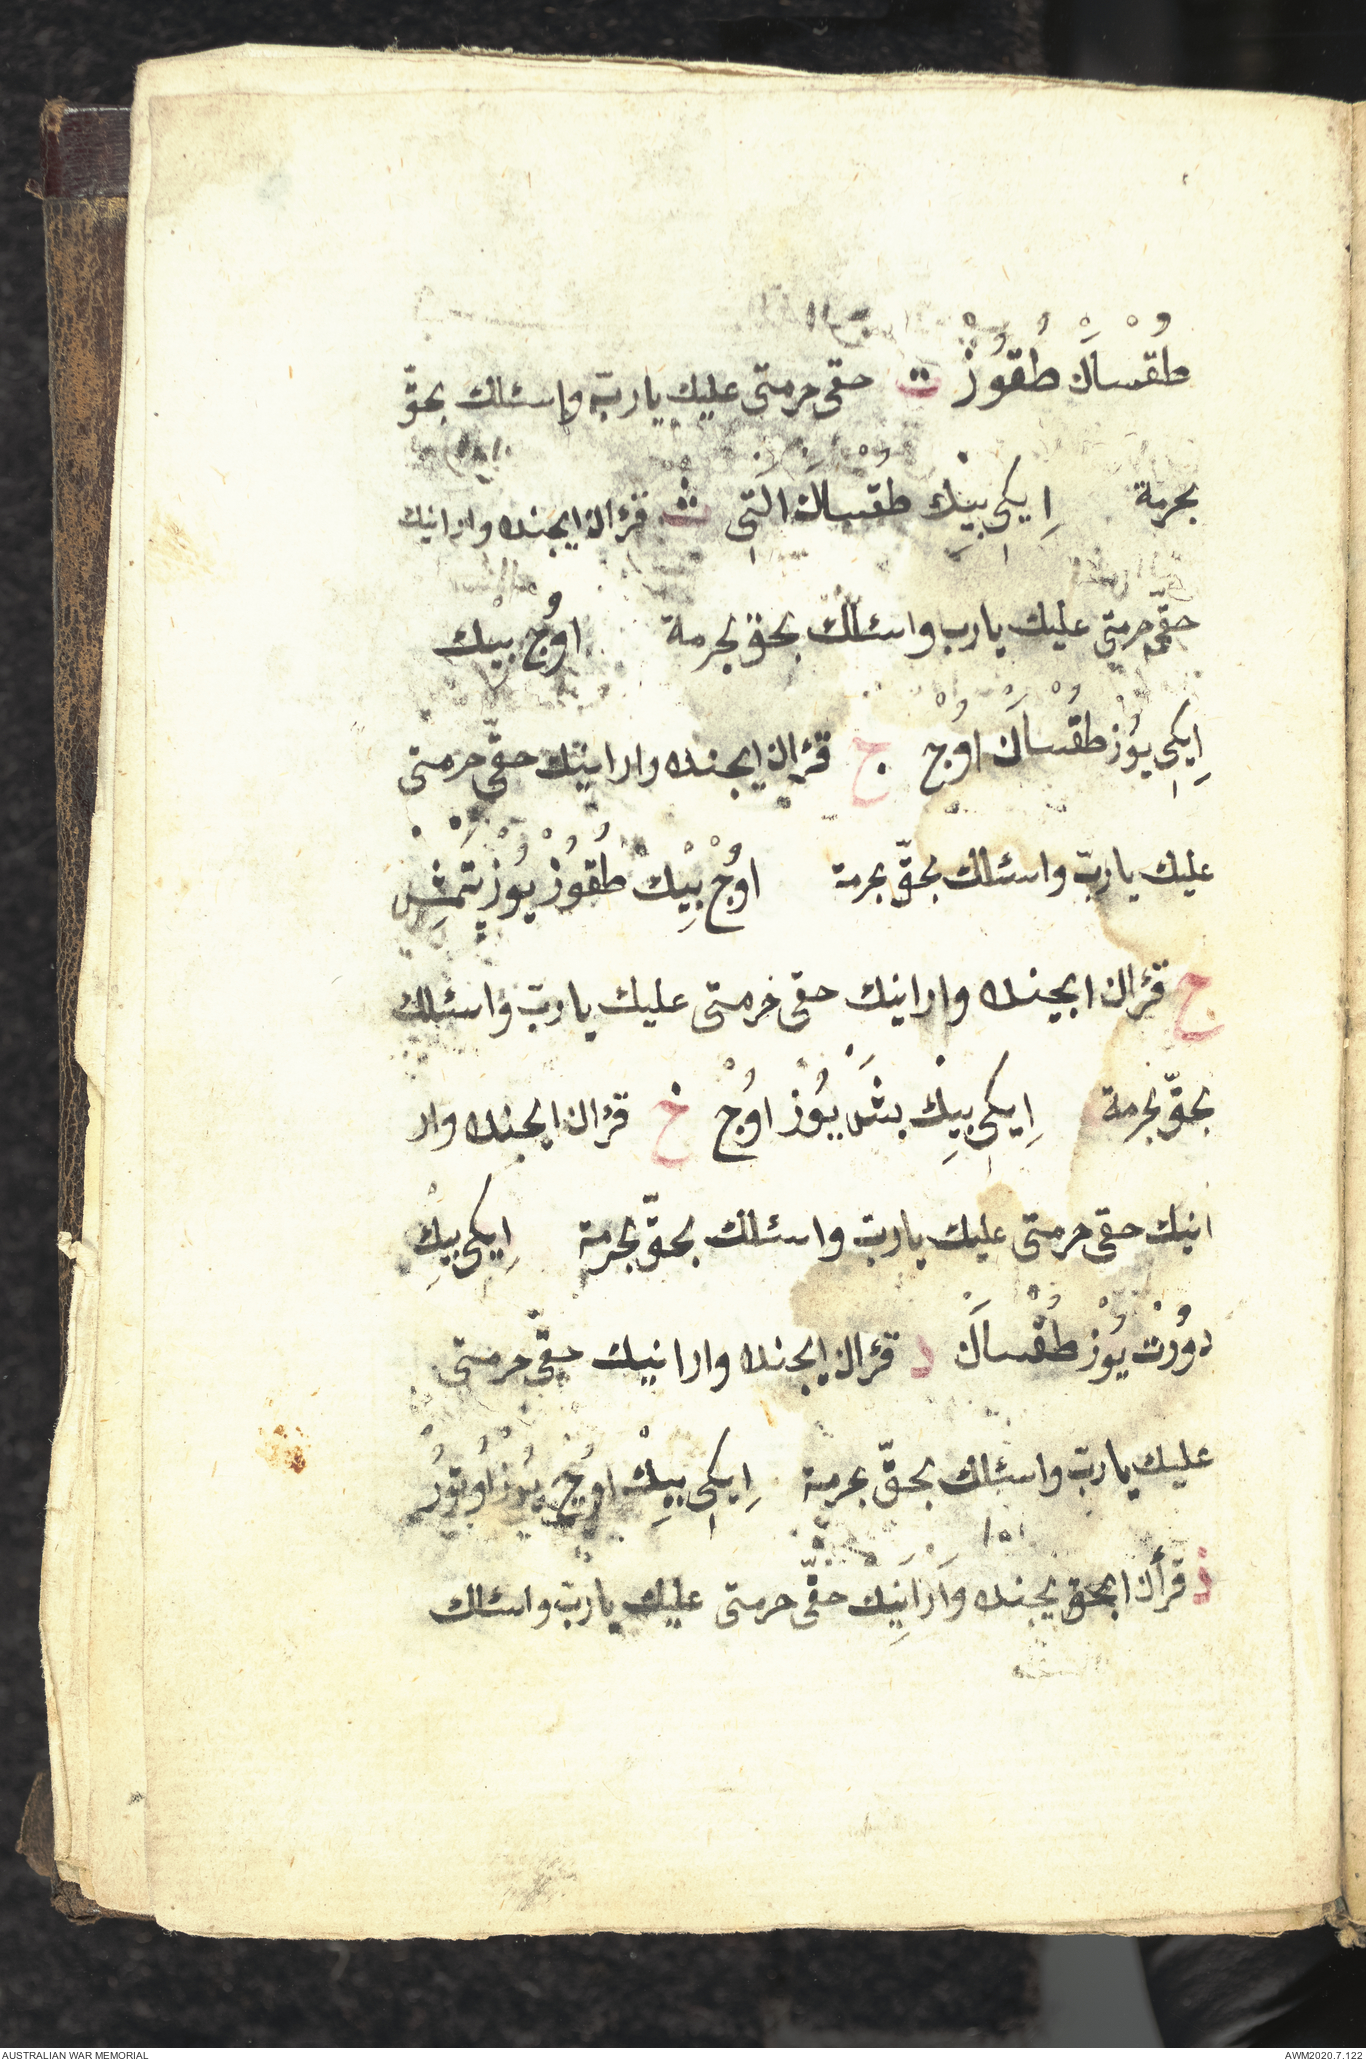 طُقْسَاَنْ طُقُوزْ ت حقى حرمتى عليك يارب واسئلك بحقّ
بحرمة اِيكِى بِيِنْك طُقْسَاَن اَلْتِى ث قرٔان ايجنده وارانيك
حقّى حرمتى عليك يارب واسئلك بحق بحرمة اوُج بيْك
اِيكِى يوُزْ طُقْسَاَنْ اوُجْ ج قرٔان ايجنده وارانيك حقّى حرمتى
عليك ياربّ واسئلك بحقّ بحرمة اوُجْ بِيْك طُقُوزْ يوُزْ يَتْمِشْ
ح قرٔان ايجنده وارانيك حقى حرمتى عليك يارب واسئلك
بحقّ بحرمة اِيكِى بِيِنْك بَشْ يوُزْ اوُجْ خ قرٔان ايجنده وار
انيك حقى حرمتى عليك يارب واسئلك بحقّ بحرمة اِيكى بِيِكْ
دوُرْت يوُزْ طُقْسَاَنْ د قرٔان ايجنده وارانيك حقّى حرمتى
عليك يارب واسئلك بحقّ بحرمة اِيكِى بِيِكْ اوُجْ يوُزْ اوُتوُزْ
ذ قرأن ايجنده وَارَانِيكْ حقّى حرمتى عليك يارب واسئلك
AUSTRALIAN WAR MEMORIAL
AWM2020.7.122